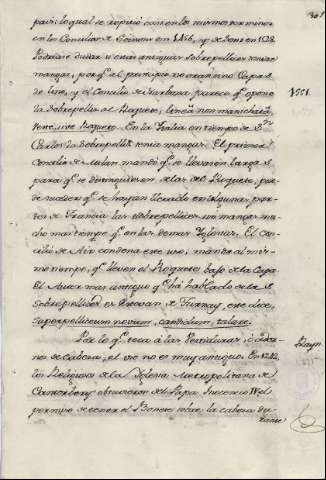 para, lo qual se repitió con en los mismos terminos
en los Concilios de Soissons en 1456, y de Sens en 1528.
tenian
mangas, porq.e al principio no eran sino Capas
de lino, y el Concilio de Narbona parece q.e opone
la Sobrepelliz al Roquete, lineâ non manicheatâ,
sive Roqueto. En la Italia en tiempo de S.n
1551.
Carlos la Sobrepelliz tenia mangas. El primer
Concilio de Milan mandó q.e se llevasen largas
para q.e se distinguiesen de las del Roquete, pue-
de suceder q.e se hayan llevado en algunas par-
tes de Francia las sobrepellizes sin mangas mu-
cho mas tiempo q.e en las demas Iglesias. El Con-
cilio de Aix condena ese uso, manda al mis-
mo tiempo, q.e lleven el Roquete bajo de la Capa.
El Autor mas antiguo q.e ha hablado de la
Sobrepelliz es Estevan de Turnay, ese dice,
Superpelliceum novum, candidum, talare.
Por lo q.e toca a las Vestiduras, ó ador-
no de Cabeza, el uso no es muy antiguo. En 1242,
Rayn.
los Religiosos de la Iglesia Metropolitana de
Cantorbery obtuvieron del Papa Inocencio IV el
permiso de tener el Bonete sobre la cabeza du-
rante